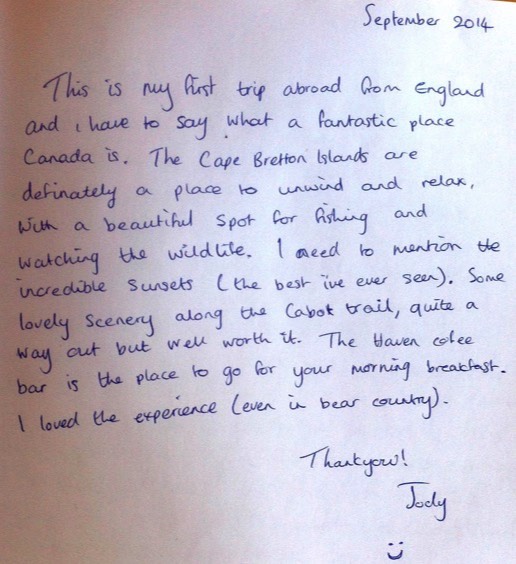 September 2014
This is my first trip abroad from England
and i have to say what a fantastic place
Canada is. The Cape Bretton Islands are
definately a place to unwind and relax,
with a beautiful spot for fishing and
watching the wildlife. I need to mention the
incredible sunsets (the best i've ever seen). Some
lovely scenery along the Cabot trail, quite a
way out but well worth it. The Haven cofee
bar is the place to go for your morning breakfast.
I loved the experience (even in bear country).
Thankyou!
Jody